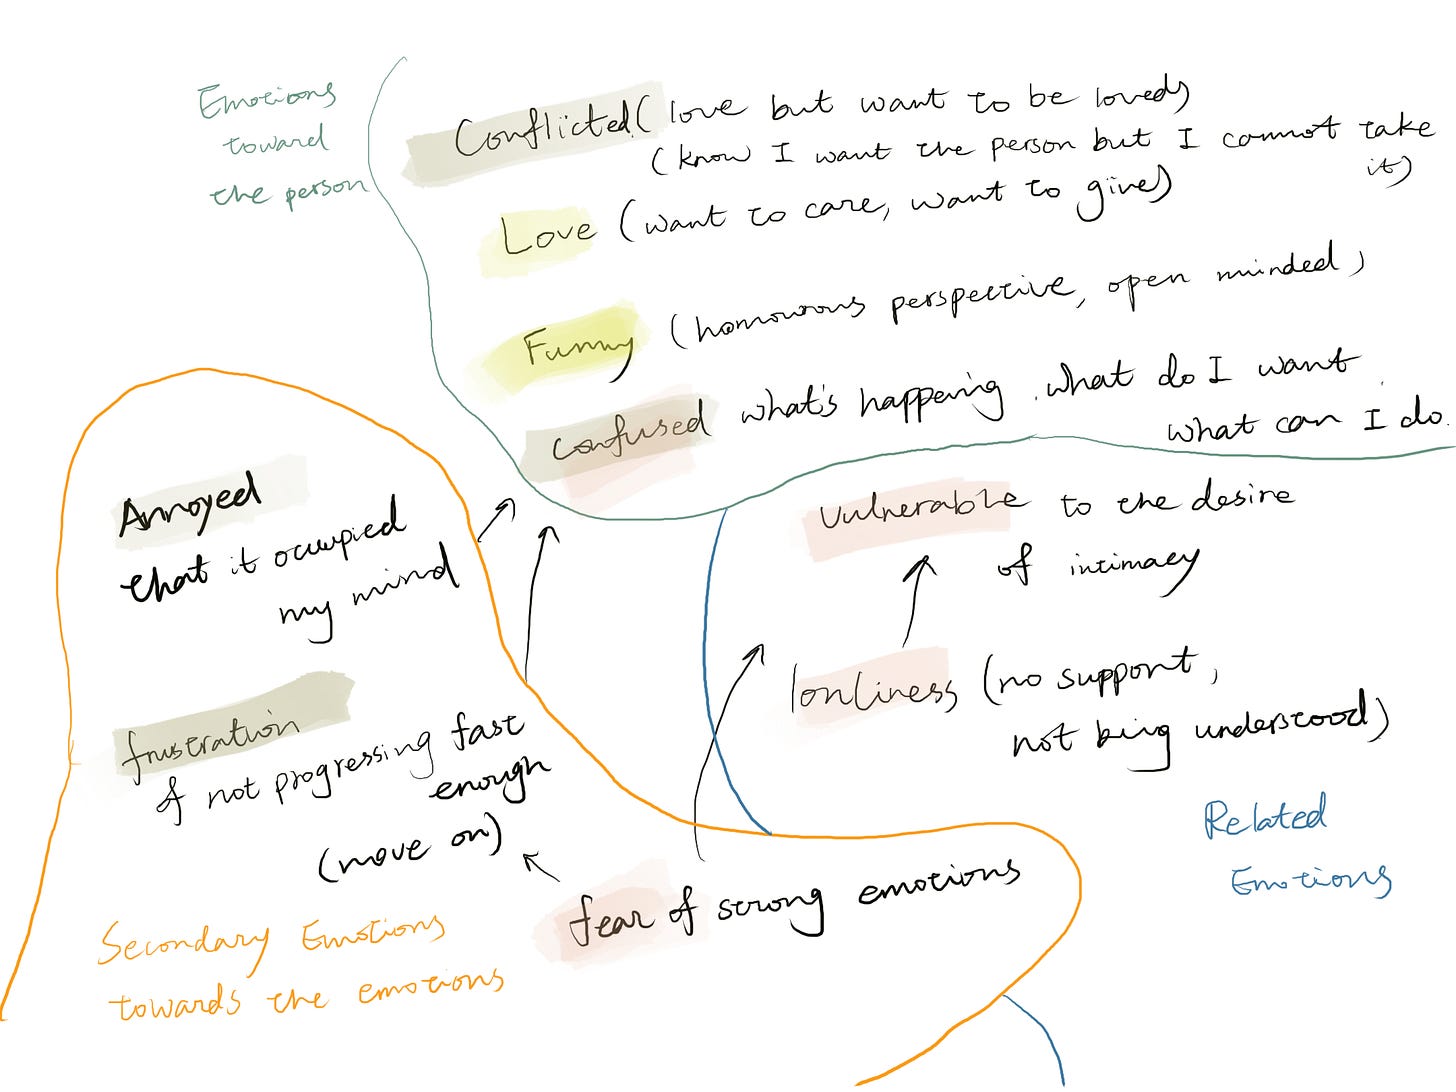 Emotions
toward
the person
Conflicted (love but want to be loved)
(know I want the person but I cannot take
it)
Love (want to care, want to give)
Funny (homourous perspective, open minded)
Confused what's happening. what do I want.
what can I do.
Annoyed
that it occupied
my mind
frustration
of not progressing fast
enough
(move on)
fear of strong emotions
Secondary Emotions
towards the emotions
Vulnerable to the desire
of intimacy
lonliness (no support,
not being understood)
Related
Emotions